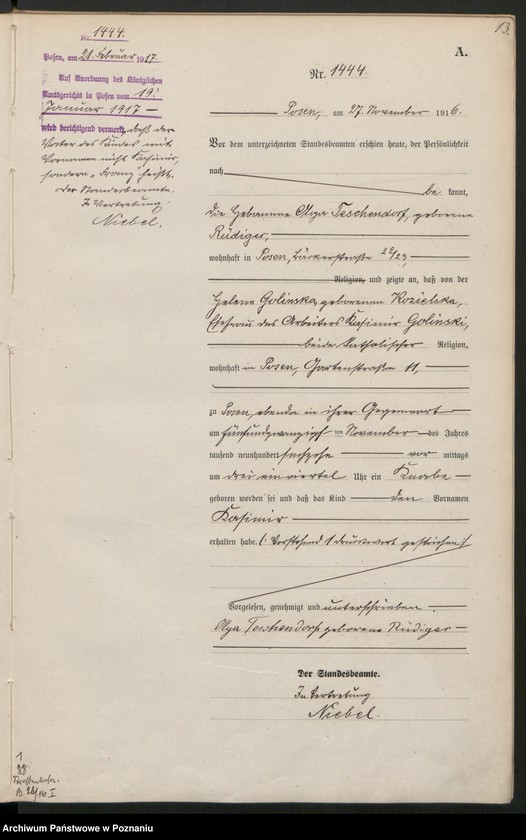 13.
Nr. 1444.
Posen, am 21. Februar 1917.
Auf Anordnung des Königlichen
Amtsgerichts in Posen vom 19.
Januar 1917 —
wird berichtigend vermerkt, daß der
Vater des Kindes mit
Vornamen nicht Kasimir,
sondern "Franz" heißt.
Der Standesbeamte.
In Vertretung.
Niebel.
A.
Nr. 1444.
Posen, am 27. November 1916.
Vor dem unterzeichneten Standesbeamten erschien heute, der Persönlichkeit
nach
be kannt,
die Hebamme Olga Teschendorf, geborene
Rüdiger,
wohnhaft in Posen, Bäckerstraße 22/23,
Religion, und zeigte an, daß von der
Helene Golinska, geborenen Kozielska,
Ehefrau des Arbeiters Kasimir Golinski,
beide katholischer Religion,
wohnhaft in Posen, Gartenstraße 11,
zu Posen, ebenda in ihrer Gegenwart
am fünfundzwanzigsten November des Jahres
tausend neunhundert sechzehn vor mittags
um drei einviertel Uhr ein Knabe
geboren worden sei und daß das Kind den Vornamen
Kasimir
erhalten habe. (Vorstehend 1 Druckwort gestrichen.)
Vorgelesen, genehmigt und unterschrieben.
Olga Teschendorf geborene Rüdiger
Der Standesbeamte.
In Vertretung
Niebel.
1
28
B. 26/16 I
Archiwum Państwowe w Poznaniu